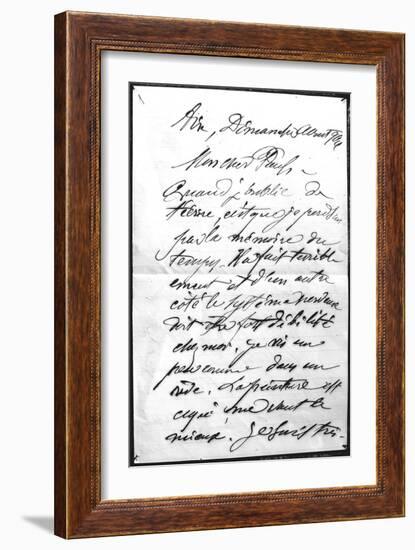 Aix, Dimanche Aout
Mon cher Paul,
Quand j'oublie de
t'écrire, c'est que je perds un
peu la mémoire du
temps. Il a fait terrible
ment et d'un autre
côté le système nerveux
doit être fort débilité
chez moi. Je vis un
peu comme dans un
vide. La peinture est
ce qui me vaut le
mieux. Je suis très-